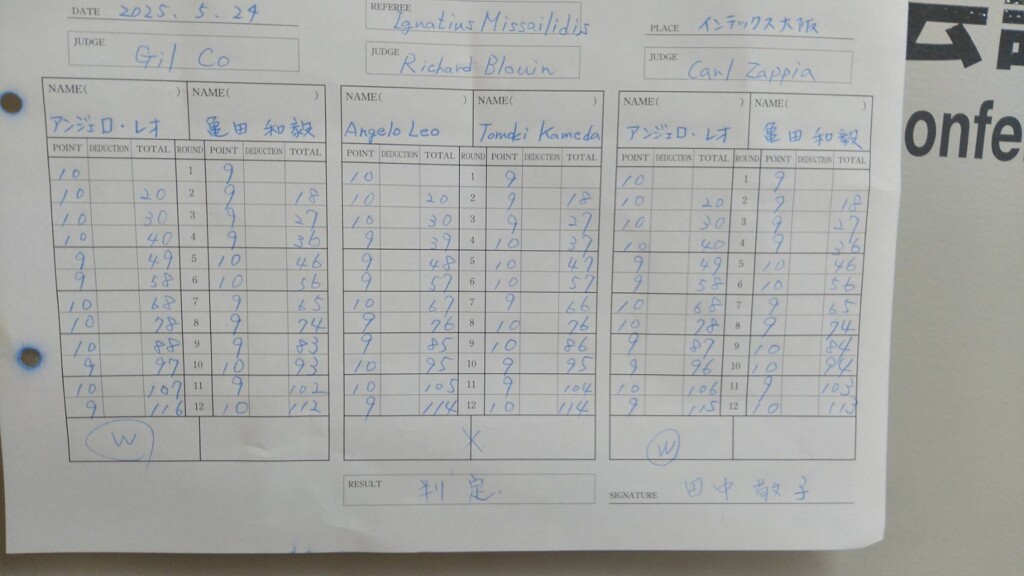 DATE 2025. 5. 24
REFEREE Ignatius Missailidis
PLACE インテックス大阪
JUDGE Gil Co
JUDGE Richard Blouin
JUDGE Carl Zappia
NAME( ) NAME( ) NAME( ) NAME( ) NAME( ) NAME( )
アンジェロ・レオ 亀田 和毅 Angelo Leo Tomoki Kameda アンジェロ・レオ 亀田 和毅
POINT DEDUCTION TOTAL ROUND POINT DEDUCTION TOTAL POINT DEDUCTION TOTAL ROUND POINT DEDUCTION TOTAL POINT DEDUCTION TOTAL ROUND POINT DEDUCTION TOTAL
10 1 9 10 1 9 10 1 9
10 20 2 9 18 10 20 2 9 18 10 20 2 9 18
10 30 3 9 27 10 30 3 9 27 10 30 3 9 27
10 40 4 9 36 9 39 4 10 37 10 40 4 9 36
9 49 5 10 46 9 48 5 10 47 9 49 5 10 46
9 58 6 10 56 9 57 6 10 57 9 58 6 10 56
10 68 7 9 65 10 67 7 9 66 10 68 7 9 65
10 78 8 9 74 9 76 8 10 76 10 78 8 9 74
10 88 9 9 83 9 85 9 10 86 9 87 9 10 84
9 97 10 10 93 10 95 10 9 95 9 96 10 10 94
10 107 11 9 102 10 105 11 9 104 10 106 11 9 103
9 116 12 10 112 9 114 12 10 114 9 115 12 10 113
W X W
RESULT 判定.
SIGNATURE 田中 敬子
onfe